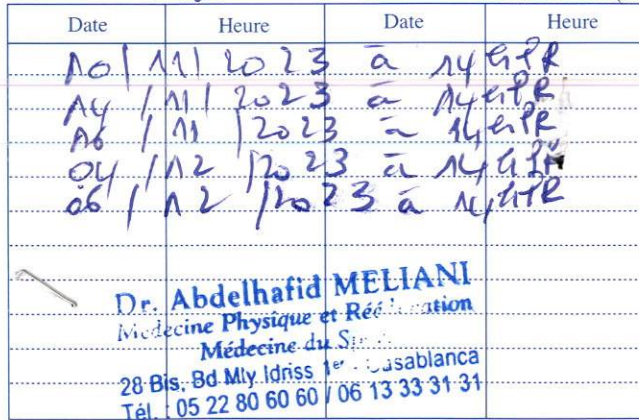 Date Heure Date Heure
10/11/2023 à 14H
14/11/2023 à 14H
16/11/2023 à 14H
04/12/2023 à 14H
06/12/2023 à 14H
Dr. Abdelhafid MELIANI
Médecine Physique et
Médecine du
28 Bis, Bd Mly Idriss 1er Casablanca
Tél. : 05 22 80 60 60 / 06 13 33 31 31